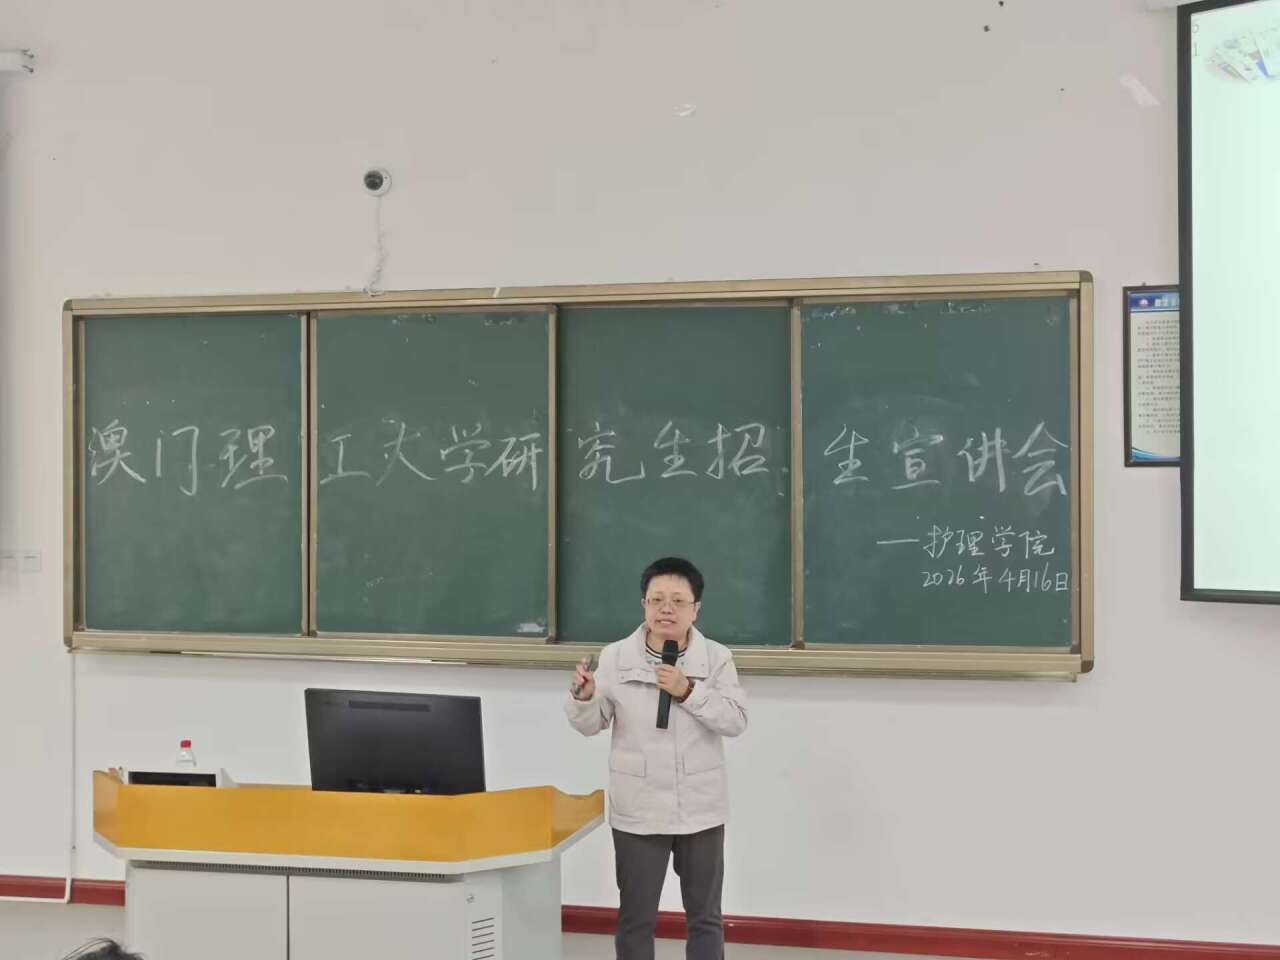 澳门理工大学研究生招生宣讲会
—护理学院
2026年4月16日